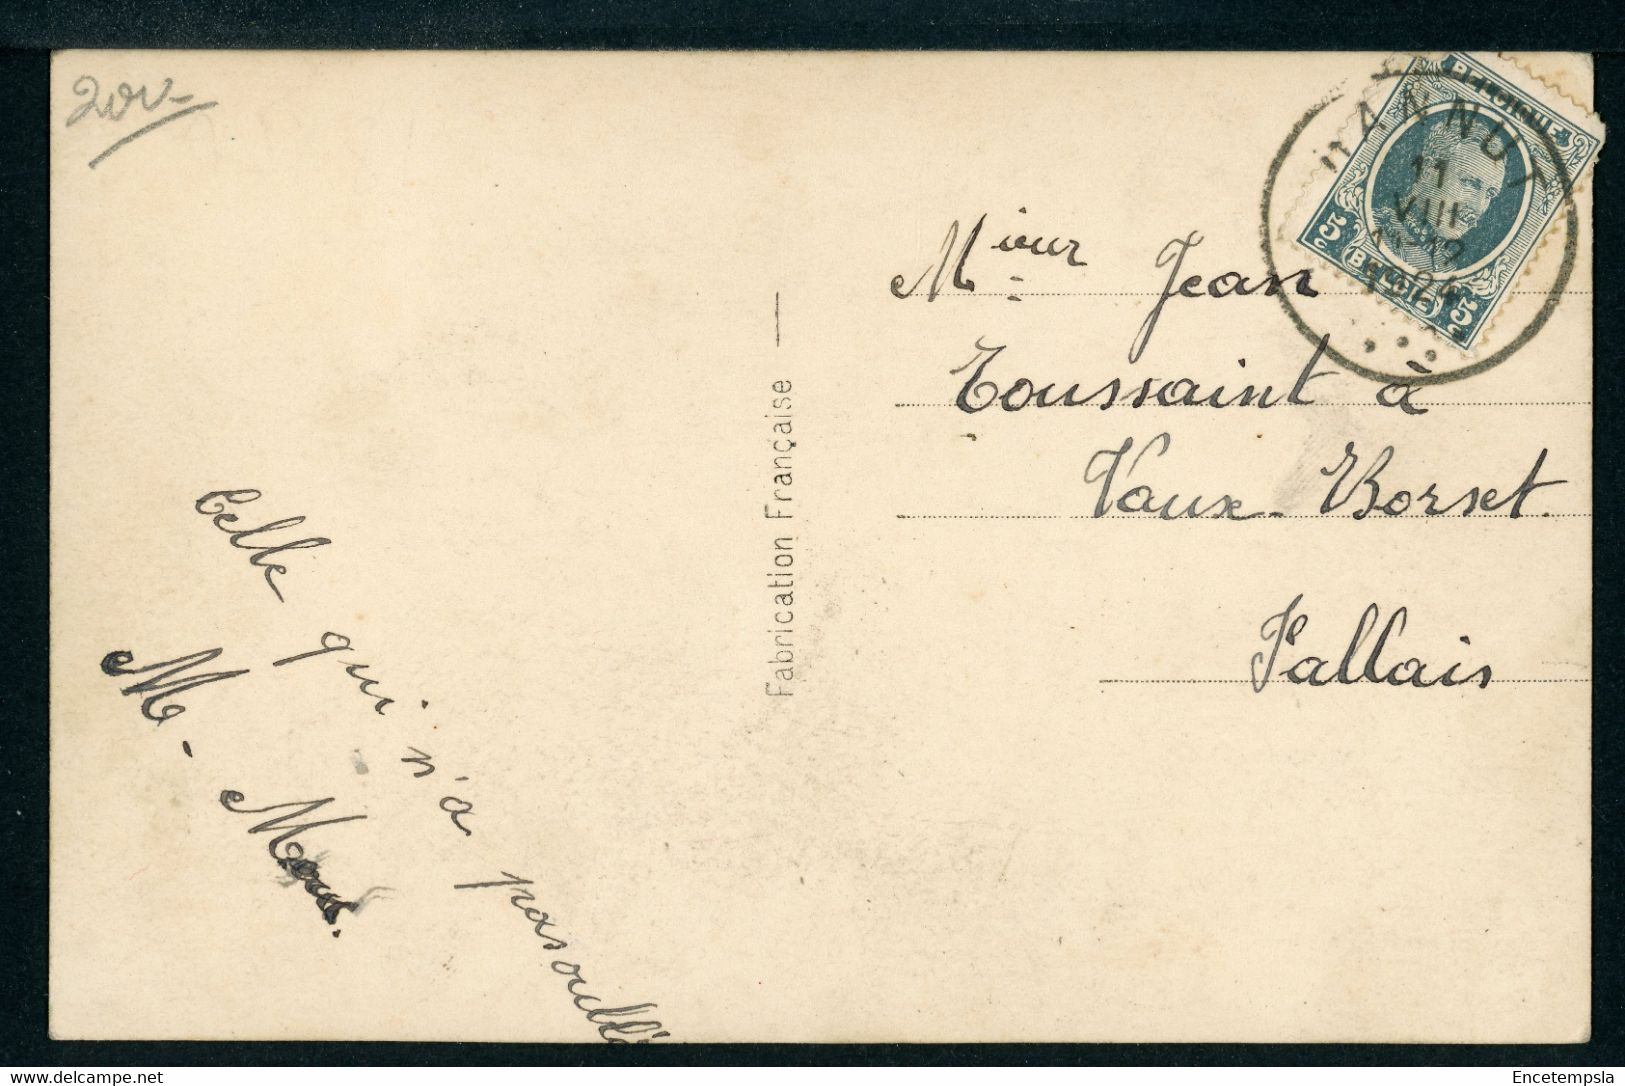 200-
HANNUT
11
VIII
1924
BELGIQUE
5
BELGIË
5
Mieur Jean
Toussaint à
Vaux-Borset.
Fallais
Fabrication Française
Celle qui n'a pas oublié
M.
Encetempsla